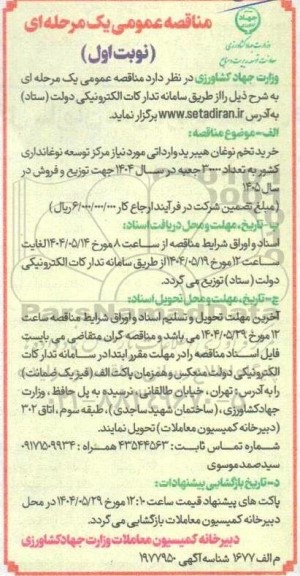 مناقصه عمومی یک مرحله ای
(نوبت اول)
وزارت جهاد کشاورزی
معاونت توسعه مدیریت و منابع
وزارت جهاد کشاورزی در نظر دارد مناقصه عمومی یک مرحله ای
به شرح ذیل را از طریق سامانه تدارکات الکترونیکی دولت (ستاد)
به آدرس www.setadiran.ir برگزار نماید.
الف-موضوع مناقصه:
خرید تخم نوغان هیبرید وارداتی مورد نیاز مرکز توسعه نوغانداری
کشور به تعداد ۳۰۰۰۰ جعبه در سال ۱۴۰۴ جهت توزیع و فروش در
سال ۱۴۰۵
(مبلغ تضمین شرکت در فرآیند ارجاع کار ۶/۰۰۰/۰۰۰/۰۰۰ ریال)
ب-تاریخ، مهلت و محل دریافت اسناد:
اسناد و اوراق شرایط مناقصه از ساعت ۸ مورخ ۱۴۰۴/۰۵/۱۴ لغایت
ساعت ۱۲ مورخ ۱۴۰۴/۰۵/۱۹ از طریق سامانه تدارکات الکترونیکی
دولت (ستاد) توزیع می گردد.
ج-تاریخ، مهلت و محل تحویل اسناد:
آخرین مهلت تحویل و تسلیم اسناد و اوراق شرایط مناقصه ساعت
۱۲ مورخ ۱۴۰۴/۰۵/۲۹ می باشد و مناقصه گران متقاضی می بایست
فایل اسناد مناقصه را در مهلت مقرر ابتدا در سامانه تدارکات
الکترونیکی دولت منعکس و همزمان پاکت الف (فیزیک ضمانت)
را به آدرس: تهران، خیابان طالقانی، نرسیده به پل حافظ، وزارت
جهادکشاورزی، (ساختمان شهید ساجدی)، طبقه سوم، اتاق ۳۰۲
(دبیرخانه کمیسیون معاملات) تحویل نمایند.
شماره تماس ثابت: ۴۳۵۴۴۵۶۳ همراه: ۰۹۱۷۵۰۹۹۳۴
سیدصمد موسوی
د-تاریخ بازگشایی پیشنهادات:
پاکت های پیشنهاد قیمت ساعت ۱۲:۱۰ مورخ ۱۴۰۴/۰۵/۲۹ در محل
دبیرخانه کمیسیون معاملات بازگشایی می گردد.
دبیرخانه کمیسیون معاملات وزارت جهادکشاورزی
م الف ۱۶۷۷ شناسه آگهی ۱۹۷۷۹۵۰